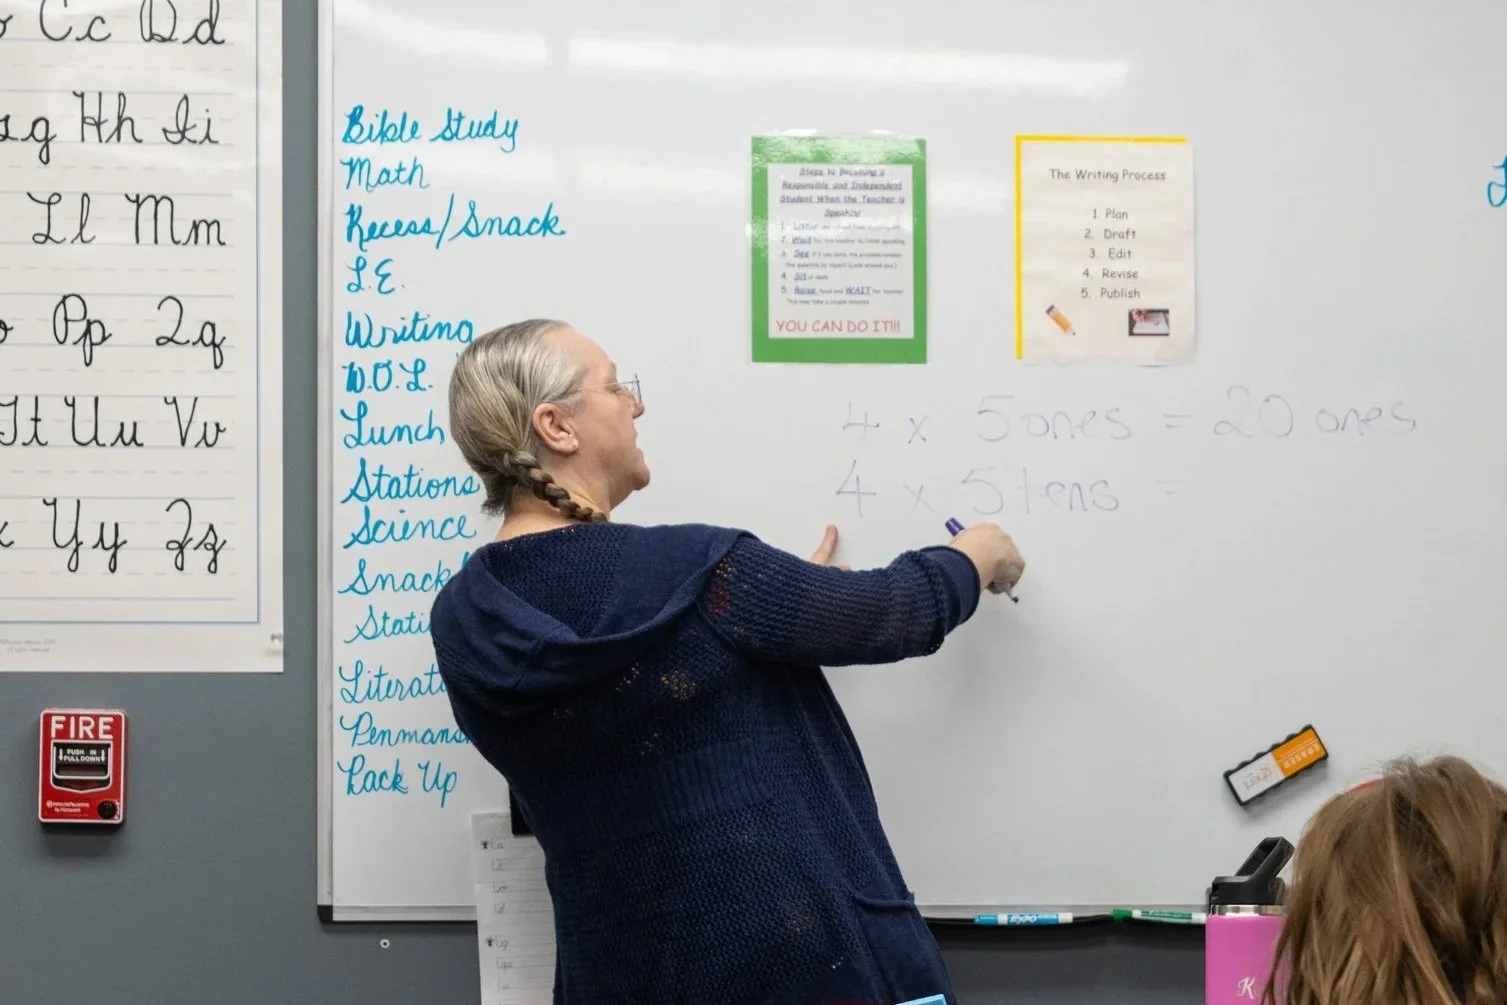 Cc Dd
g Hh Ii
Ll Mm
Pp Qq
Tt Uu Vv
Yy Zz
FIRE
PUSH IN
PULL DOWN
Bible Study
Math
Recess/Snack
L.E.
Writing
W.O.L.
Lunch
Stations
Science
Snack
Stati
Literat
Penmans
Pack Up
Steps to Becoming a
Responsible and Independent
Student When the Teacher is
Speaking
1. Listen
2. Wait for the teacher to finish speaking
3. See if I can solve the problem/answer
the question by myself (Look around you)
4. Sit
5. Raise hand and WAIT for teacher
This may take a couple minutes
YOU CAN DO IT!!!
The Writing Process
1. Plan
2. Draft
3. Edit
4. Revise
5. Publish
4 x 5 ones = 20 ones
4 x 5 tens =
ERASER
EXPO
K